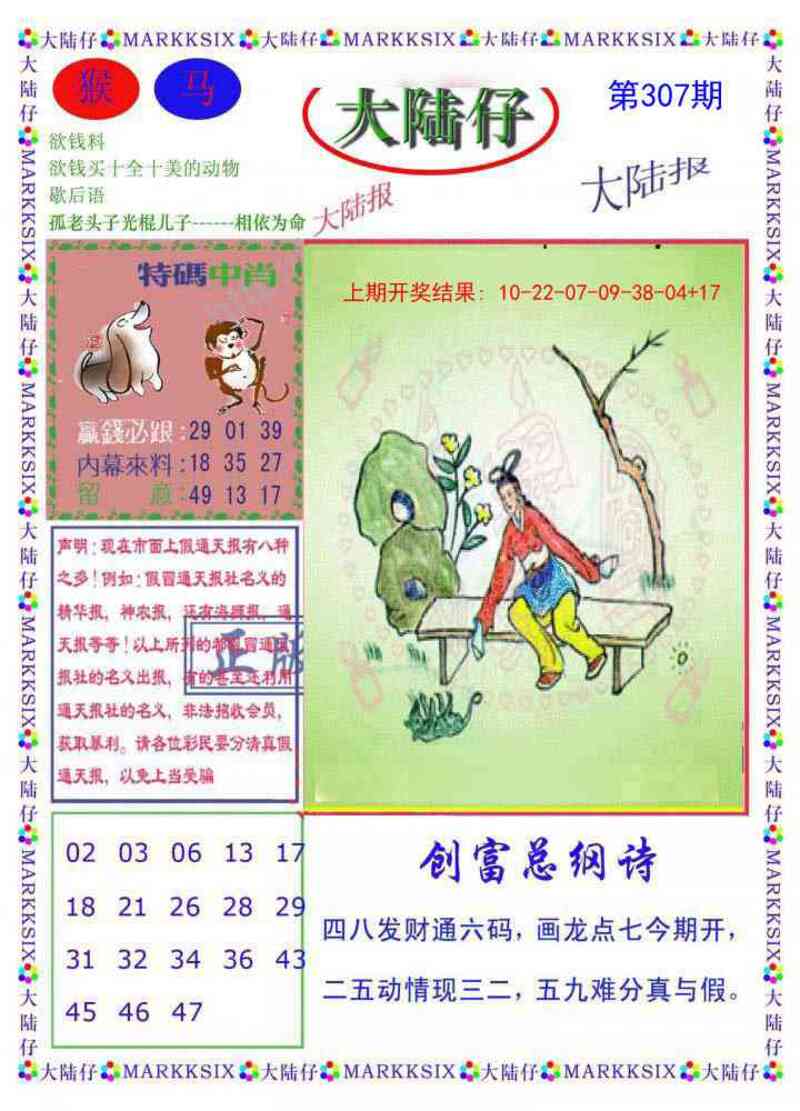 大陆仔 MARKKSIX 大陆仔 MARKKSIX 大陆仔 MARKKSIX 大陆仔
猴 马
大陆仔
第307期
欲钱料
欲钱买十全十美的动物
歇后语
孤老头子光棍儿子------相依为命
大陆报
大陆报
特碼中肖
赢錢必跟:29 01 39
内幕來料:18 35 27
留 意:49 13 17
上期开奖结果: 10-22-07-09-38-04+17
声明:现在市面上假通天报有八种
之多!例如:假冒通天报社名义的
精华报，神农报，还有海狮报，通
天报等等!以上所列的都假冒通天
报社的名义出报，有的甚至还利用
通天报社的名义，非法招收会员，
获取暴利。请各位彩民要分清真假
通天报，以免上当受骗
正版
02 03 06 13 17
18 21 26 28 29
31 32 34 36 43
45 46 47
创富总纲诗
四八发财通六码，画龙点七今期开，
二五动情现三二，五九难分真与假。
大陆仔 MARKKSIX 大陆仔 MARKKSIX 大陆仔 MARKKSIX 大陆仔
大陆仔 MARKKSIX 大陆仔 MARKKSIX 大陆仔 MARKKSIX 大陆仔 MARKKSIX 大陆仔
大陆仔 MARKKSIX 大陆仔 MARKKSIX 大陆仔 MARKKSIX 大陆仔 MARKKSIX 大陆仔